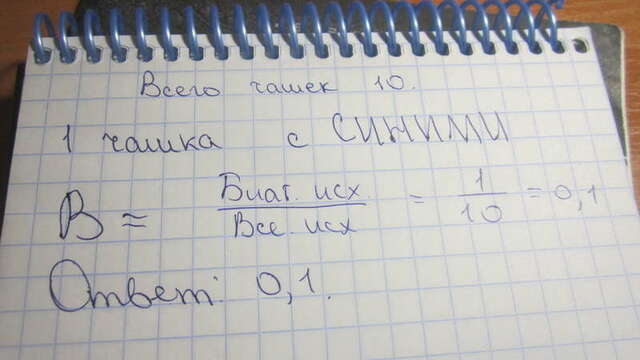 Всего чашек 10.
1 чашка с синими
В = Благ. исх / Все. исх = 1/10 = 0,1
Ответ: 0,1.